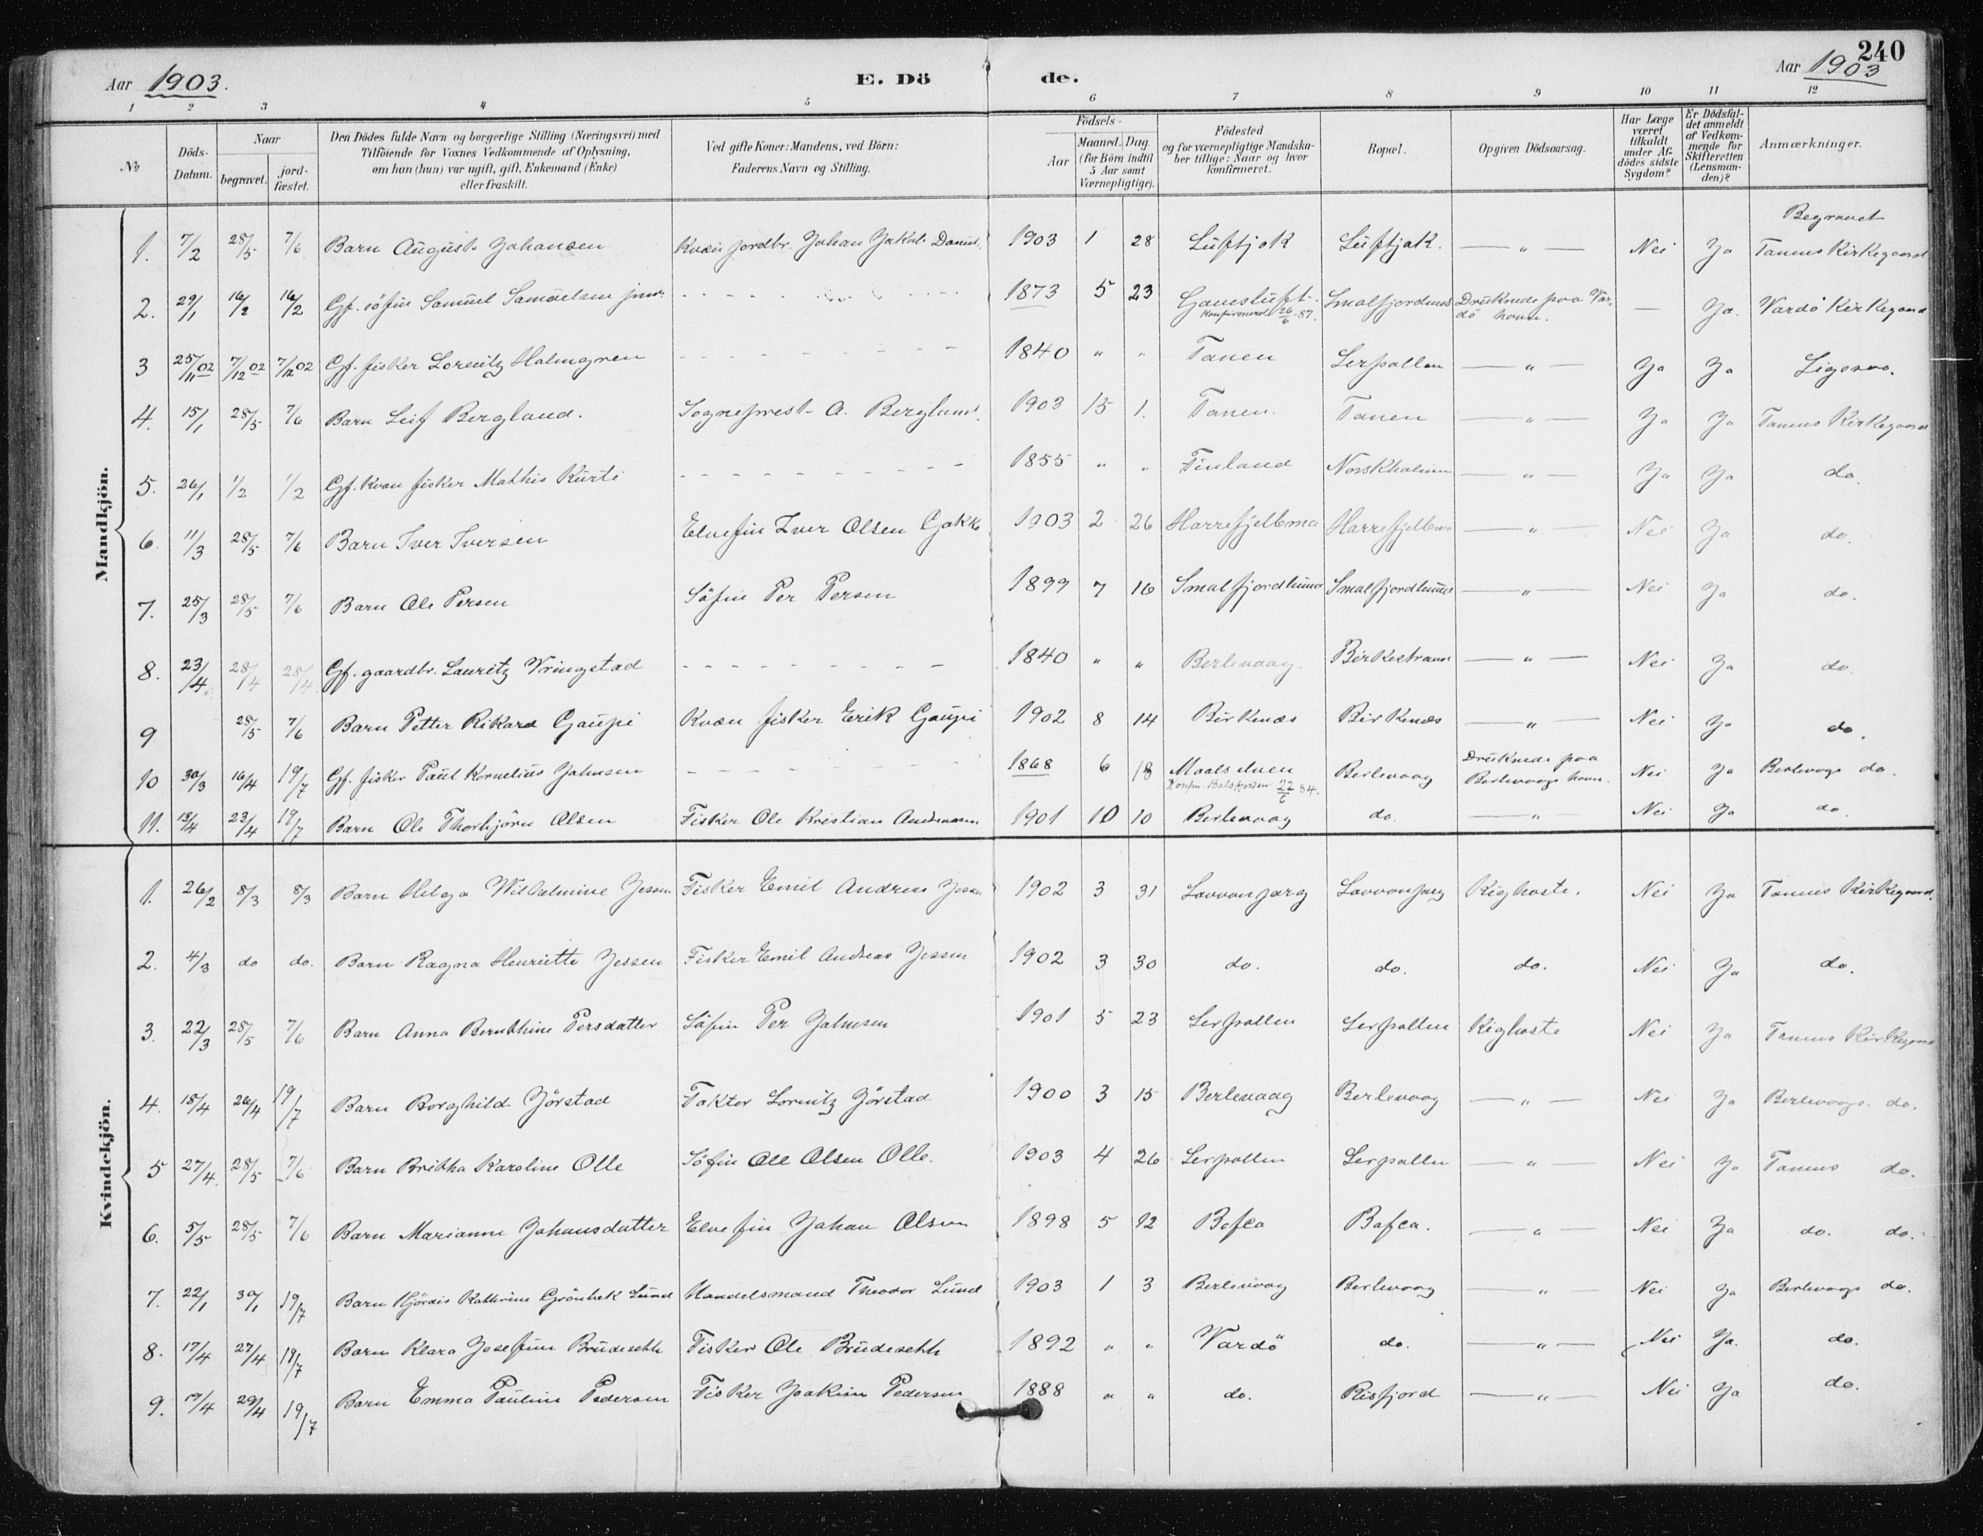 240
Aar 1903. E. Dö de. Aar 1903
1 2 3 4 5 6 7 8 9 10 11 12
No Döds-Datum. Naar begravet. jord-fæstet. Den Dödes fulde Navn og borgerlige Stilling (Næringsvei) med Tilföiende for Voxnes Vedkommende af Oplysning, om han (hun) var ugift, gift, Enkemand (Enke) eller fraskilt. Ved gifte Koner: Mandens, ved Börn: Faderens Navn og Stilling. Födsels- Aar Maaned. Dag. (for Börn indtil 5 Aar samt Værnepligtige). Födested og for værnepligtige Mandskaber tillige: Naar og hvor konfirmeret. Bopæl. Opgiven Dödsaarsag. Har Læge været tilkaldt under Afdödes sidste Sygdom? Er Dödsfaldet anmeldt af Vedkommende for Skifteretten (Lensmanden)? Anmærkninger.
Mandkjön.
Begravet
1. 7/2 28/5 7/6 Barn August Johansen Kvæn jordbr. Johan Jakob Daniel. 1903 1 28 Luftjok Luftjok. — " — Nei Ja Tanens Kirkegaard
2. 29/1 16/2 16/2 Gf. söfin Samuel Samuelsen jun. - - - 1873 5 23 Gavesluft Smalfjordnes Druknede paa Var- — Ja. Vardö Kirkegaard
Konfirmeret 26/6 87. dö havn.
3 25/11 02 7/12 02 7/12 02 Gf. fisker Lorentz Halmgren - - - 1840 " " Tanen Lerpollen — " — Ja Ja Ligesaa.
4. 15/1 28/5 7/6 Barn Leif Bergland. Sogneprest A. Bergland. 1903 15 1. Tanen. Tanen — " — Ja Ja Tanens Kirkegaard
5. 26/1 1/2 1/2 Gf. Kvæn fisker Mathis Kurti - - - 1855 " " Finland Norskholmen — " — Ja Ja do.
6. 11/3 28/5 7/6 Barn Iver Iversen Elvefin Iver Olsen Gakk 1903 2 26 Harrefjellema Harrefjellema — " — Nei Ja do.
7. 25/3 28/5 7/6 Barn Ole Persen Söfin Per Persen 1899 7 16 Smalfjordbund Smalfjordbund — " — Nei Ja do.
8. 23/4. 28/4 28/4 Gf. gaardbr. Lauritz Vringstad - - - 1840 " " Berlevaag. Birkestrand — " — Nei Ja do.
9 28/5 7/6 Barn Petter Rikard Gaupi Kvæn fisker Erik Gaupi 1902 8 14 Birkenæs Birkenæs — " — Nei Ja do.
10 30/3 16/4 19/7 Gf. fisker Paul Kornelius Johnsen - - - 1868 6 18 Maalselven Berlevaag Druknede paa Nei Ja Berlevaags do.
Konfm. Balsfjorden 22/6 84. Berlevaags havn.
11. 15/4 23/4 19/7 Barn Ole Thorbjörn Olsen Fisker Ole Kristian Andreassen 1901 10 10 Berlevaag do. — " — Nei Ja do.
Kvindekjön.
1. 26/2 8/3 8/3 Barn Helga Wilhelmine Jessen Fisker Emil Andreas Jessen 1902 3 31 Lavvonjarg Lavvonjarg Kighoste. Nei Ja Tanens Kirkegaard.
2. 4/3 do do. Barn Ragna Henriette Jessen Fisker Emil Andreas Jessen 1902 3 30 do. do. do. Nei Ja do.
3. 22/3 28/5 7/6 Barn Anna Bernthine Persdatter Söfin Per Johnsen 1901 5 23 Lerpollen Lerpollen Kighoste Nei Ja Tanens Kirkegaard
4. 18/4 26/4 19/7 Barn Borghild Jörstad Faktor Lorentz Jörstad 1900 3 15 Berlevaag Berlevaag — " — Nei Ja Berlevaags. do.
5 27/4. 28/5 7/6 Barn Britha Karoline Olle Söfin Ole Olsen Olle. 1903 4 26 Lerpollen Lerpollen — " — Nei Ja Tanens do.
6. 5/5 28/5 7/6 Barn Marianne Johansdatter Elvefin Johan Olsen 1898 5 12 Bofca Bafca. — " — Nei Ja do. do.
7. 22/1 30/1 19/7 Barn Hjördis Kathrine Grönbek Lund Handelsmand Theodor Lund 1903 1 3 Berlevaag Berlevaag — " — Nei Ja Berlevaags do.
8. 17/4 27/4 19/7 Barn Klara Josefine Brudeseth Fisker Ole Brudeseth 1892 " " Vardö do. — " — Nei Ja. do.
9. 19/4 29/4 19/7 Barn Emma Pauline Pedersen Fisker Joakim Pedersen 1888 " " do. Risfjord — " — Nei Ja do.